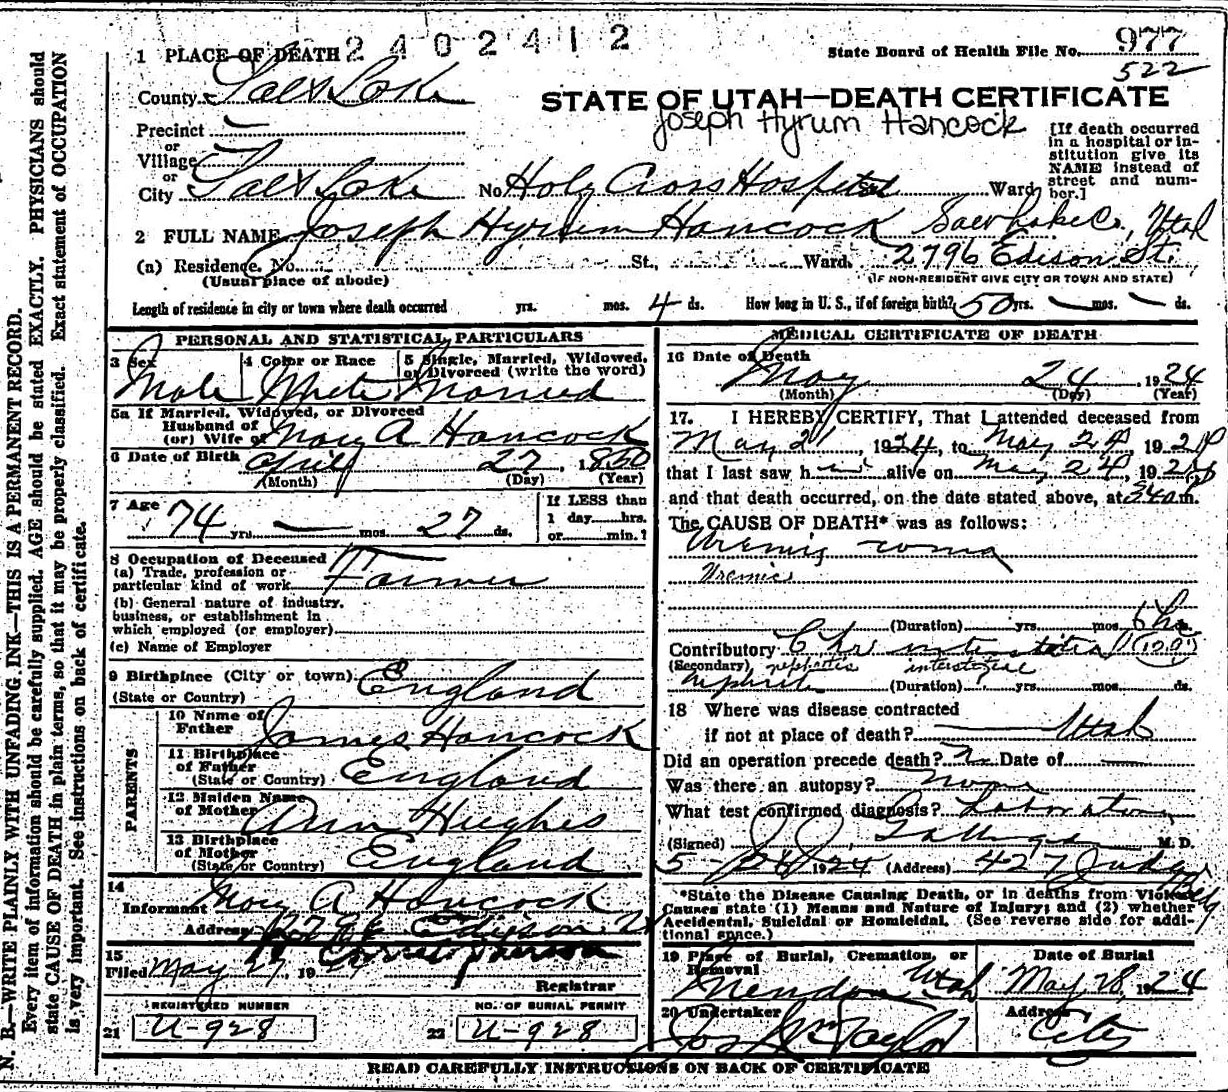 N. B.—WRITE PLAINLY WITH UNFADING INK—THIS IS A PERMANENT RECORD.
Every item of information should be carefully supplied. AGE should be stated EXACTLY. PHYSICIANS should
state CAUSE OF DEATH in plain terms, so that it may be properly classified. Exact statement of OCCUPATION
is very important. See instructions on back of certificate.
2402412
1 PLACE OF DEATH
State Board of Health File No. 977
522
County Salt Lake
STATE OF UTAH—DEATH CERTIFICATE
Joseph Hyrum Hancock
Precinct —
or
Village —
or
City Salt Lake No. Holy Cross Hospital Ward
[If death occurred
in a hospital or in-
stitution give its
NAME instead of
street and num-
ber.]
2 FULL NAME Joseph Hyrum Hancock Salt Lake Co., Utah
(a) Residence. No. St., Ward. 2796 Edison St.
(Usual place of abode) (IF NON-RESIDENT GIVE CITY OR TOWN AND STATE)
Length of residence in city or town where death occurred yrs. mos. 4 ds. How long in U. S., if of foreign birth? 50 yrs. — mos. — ds.
PERSONAL AND STATISTICAL PARTICULARS
3 Sex 4 Color or Race 5 Single, Married, Widowed,
or Divorced (write the word)
Male White Married
5a If Married, Widowed, or Divorced
Husband of
(or) Wife of Mary A Hancock
6 Date of Birth April 27, 1850
(Month) (Day) (Year)
7 Age 74 yrs. — mos. 27 ds.
If LESS than
1 day hrs.
or min.?
8 Occupation of Deceased
(a) Trade, profession or
particular kind of work Farmer
(b) General nature of industry,
business, or establishment in
which employed (or employer)
(c) Name of Employer
9 Birthplace (City or town) England
(State or Country)
PARENTS
10 Name of
Father James Hancock
11 Birthplace
of Father England
(State or Country)
12 Maiden Name
of Mother Ann Hughes
13 Birthplace
of Mother England
(State or Country)
14
Informant Mary A Hancock
Address Edison
15
Filed May 27, 19
Registrar
REGISTERED NUMBER NO. OF BURIAL PERMIT
21 U-928 22 U-928
MEDICAL CERTIFICATE OF DEATH
16 Date of Death
May 24, 1924
(Month) (Day) (Year)
17. I HEREBY CERTIFY, That I attended deceased from
May 21, 1924, to May 24 1924
that I last saw h alive on May 24, 1924
and that death occurred, on the date stated above, at m.
The CAUSE OF DEATH* was as follows:
Uremic coma
Uremic
(Duration) yrs. mos. 6 hrs
Contributory Chr interstitial
(Secondary) nephritis interstitial
nephritis (Duration) yrs. mos. ds.
18 Where was disease contracted
if not at place of death? Utah
Did an operation precede death? Date of —
Was there an autopsy? None
What test confirmed diagnosis? Laboratory
(Signed) M. D.
5- 1924 (Address) 427 Judge Bldg.
*State the Disease Causing Death, or in deaths from Violent
Causes state (1) Means and Nature of Injury; and (2) whether
Accidental, Suicidal or Homicidal. (See reverse side for addi-
tional space.)
19 Place of Burial, Cremation, or
Removal
Mendon Utah
Date of Burial
May 28, 1924
20 Undertaker
Jos Wm Taylor
Address
City
READ CAREFULLY INSTRUCTIONS ON BACK OF CERTIFICATE